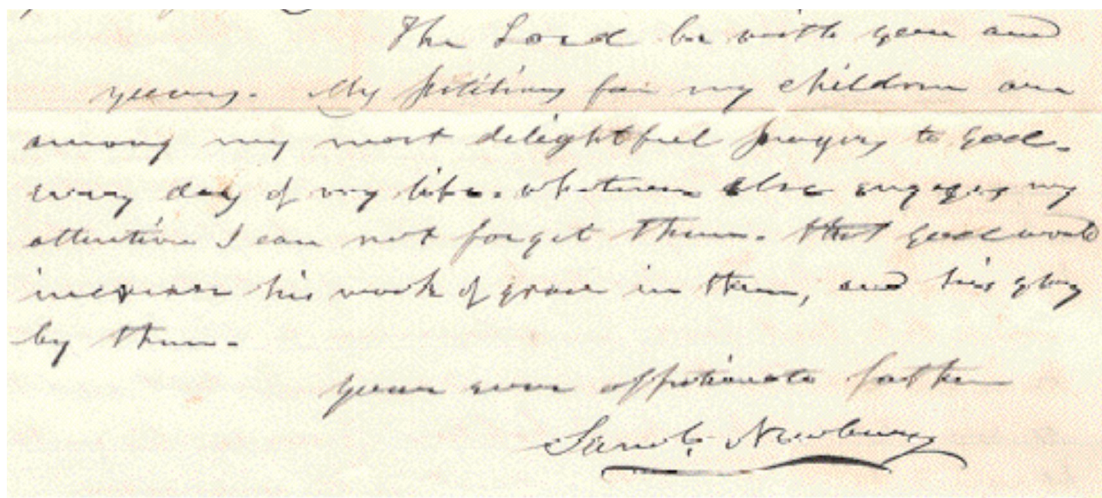 The Lord be with you and
yours. My petitions for my children are
among my most delightful prayers to God.
every day of my life. whatever else engages my
attention I can not forget them. that God would
increase his work of grace in them, and his glory
by them.
your ever affectionate father
Newbury